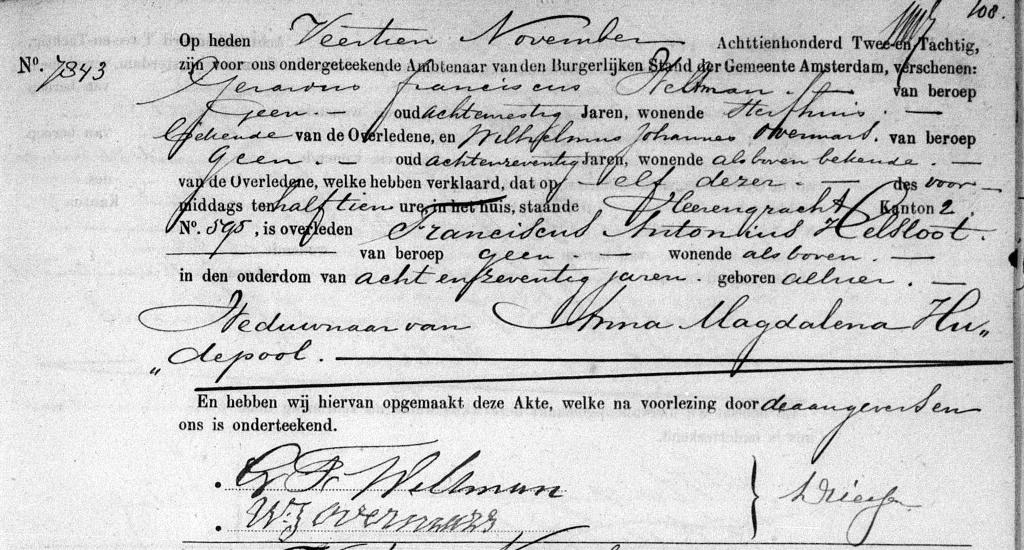 108.
Op heden Veertien November Achttienhonderd Twee en Tachtig,
No. 7843 zijn voor ons ondergeteekende Ambtenaar van den Burgerlijken Stand der Gemeente Amsterdam, verschenen:
Gerardus Franciscus Weltman. van beroep
geen. oud achtenzestig Jaren, wonende Sterfhuis.
bekende van de Overledene, en Wilhelmus Johannes Overmars. van beroep
geen oud achtenzeventig Jaren, wonende als boven bekende.
van de Overledene, welke hebben verklaard, dat op elf dezer des voor-
middags ten half tien ure, in het huis, staande Heerengracht Kanton 2.
No. 595, is overleden Franciscus Antonius Helsloot.
van beroep geen wonende als boven.
in den ouderdom van acht en zeventig jaren. geboren alhier.
Weduwnaar van Anna Magdalena Hu„
„depool.
En hebben wij hiervan opgemaakt deze Akte, welke na voorlezing door de aangevers en
ons is onderteekend.
G F Weltman
W.J overmars